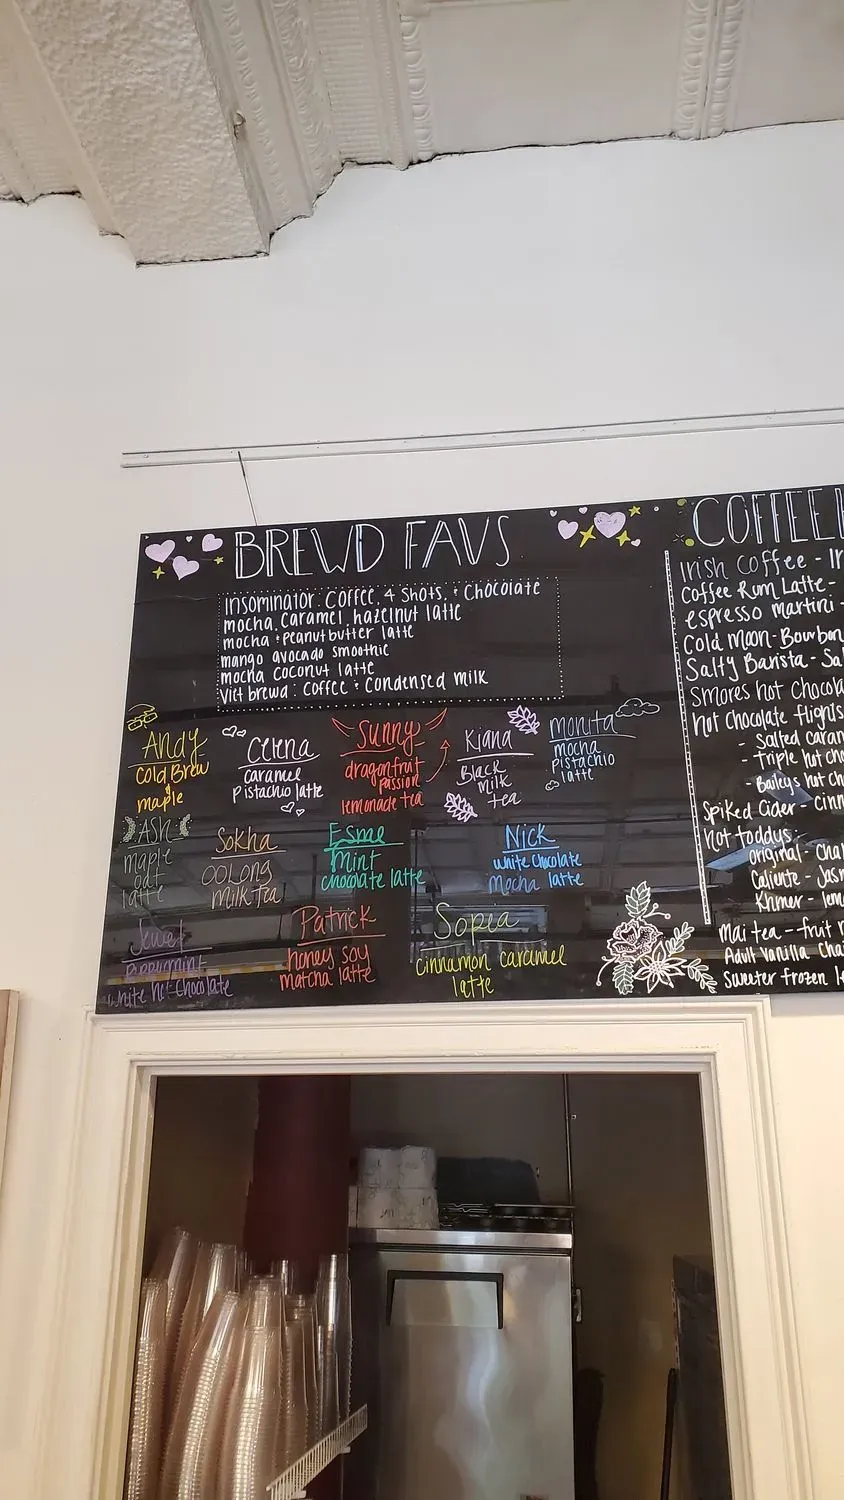 BREWD FAVS
Insominator: Coffee, 4 Shots, & Chocolate
mocha, caramel, hazelnut latte
mocha & peanutbutter latte
mango avocado smoothie
mocha coconut latte
Viet brewd: coffee & condensed milk
Andy
Cold Brew
&
maple
Celena
caramel
pistachio latte
Sunny
dragonfruit
passion
lemonade tea
Kiana
Black
milk
tea
Monita
mocha
pistachio
latte
Ash
maple
oat
latte
Sokha
OOLONG
milk tea
Esme
Mint
chocolate latte
Nick
white chocolate
Mocha latte
Jewel
peppermint
white hot chocolate
Patrick
honey soy
matcha latte
Sopea
cinnamon caramel
latte
COFFEE
Irish Coffee - Ir
Coffee Rum Latte -
espresso martini -
Cold Moon - Bourbon
Salty Barista - Sal
Smores hot chocola
hot chocolate flights
- Salted caram
- triple hot ch
- Baileys hot ch
Spiked Cider - cinn
hot toddys:
original - Cha
Caliente - Jasm
Khmer - lem
Mai tea - fruit
Adult vanilla chai
Sweeter frozen le